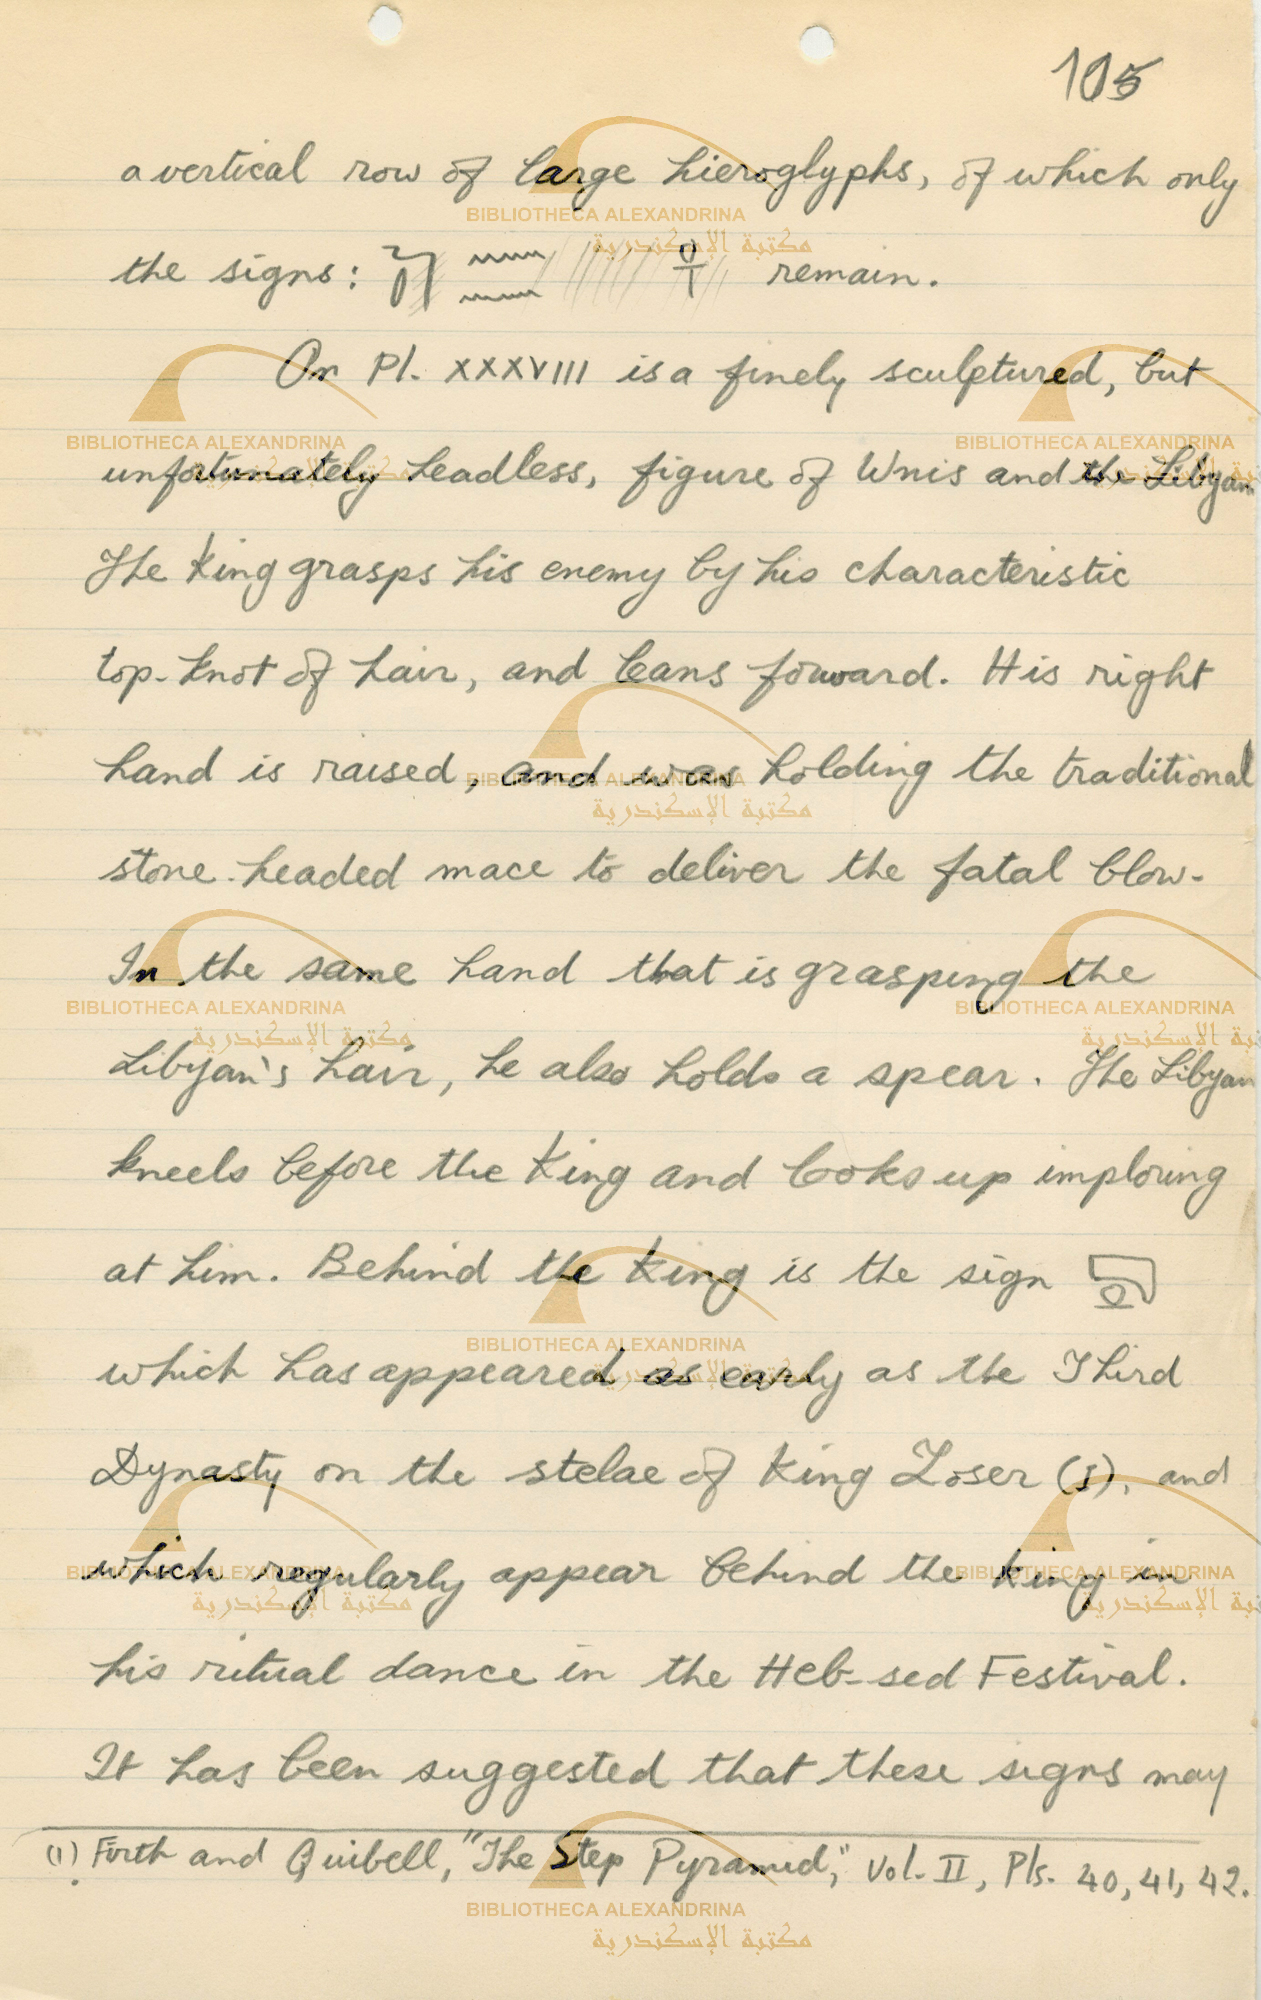 105
a vertical row of large hieroglyphs, of which only
the signs: remain.
On Pl. XXXVIII is a finely sculptured, but
unfortunately headless, figure of Wnis and the Libyan
The King grasps his enemy by his characteristic
top-knot of hair, and leans forward. His right
hand is raised, and was holding the traditional
stone-headed mace to deliver the fatal blow.
In the same hand that is grasping the
Libyan's hair, he also holds a spear. The Libyan
kneels before the King and looks up imploring
at him. Behind the King is the sign
which has appeared as early as the Third
Dynasty on the stelae of King Zoser (1), and
which regularly appear behind the King in
his ritual dance in the Heb-sed Festival.
It has been suggested that these signs may
(1) Firth and Quibell, "The Step Pyramid", Vol. II, Pls. 40, 41, 42.
BIBLIOTHECA ALEXANDRINA
مكتبة الإسكندرية